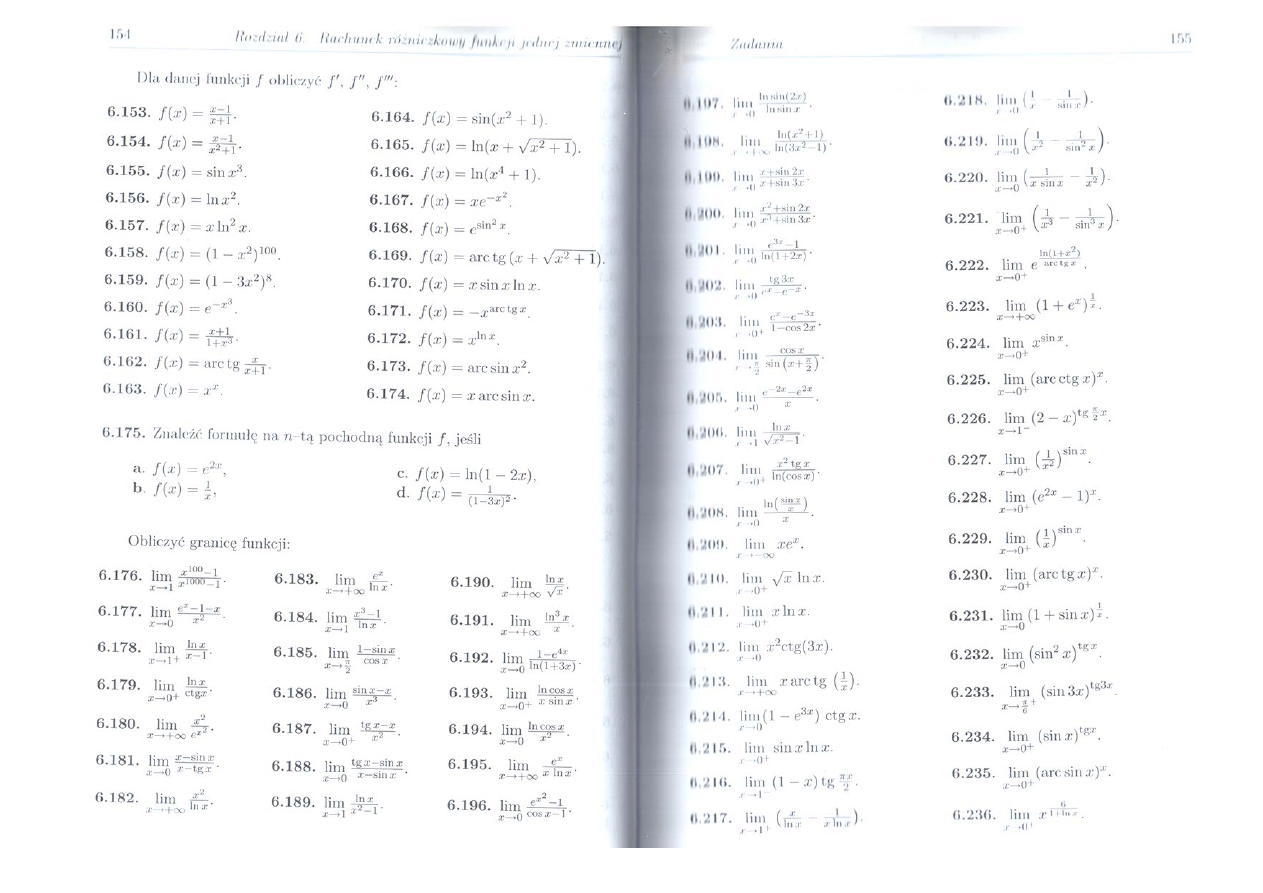 154 Rozdział 6. Rachunek różniczkowy funkcji jednej zmiennej
Dla danej funkcji f obliczyć f′, f″, f‴:
6.153. f(x) = (x−1)/(x+1).
6.154. f(x) = (x−1)/(x²+1).
6.155. f(x) = sin x³.
6.156. f(x) = ln x².
6.157. f(x) = x ln² x.
6.158. f(x) = (1 − x²)¹⁰⁰.
6.159. f(x) = (1 − 3x²)⁸.
6.160. f(x) = e^(−x³).
6.161. f(x) = (x+1)/(1+x³).
6.162. f(x) = arc tg x/(x+1).
6.163. f(x) = x^x.
6.164. f(x) = sin(x² + 1).
6.165. f(x) = ln(x + √(x² + 1)).
6.166. f(x) = ln(x⁴ + 1).
6.167. f(x) = xe^(−x²).
6.168. f(x) = e^(sin² x).
6.169. f(x) = arc tg (x + √(x² + 1)).
6.170. f(x) = x sin x ln x.
6.171. f(x) = −x^(arc tg x).
6.172. f(x) = x^(ln x).
6.173. f(x) = arc sin x².
6.174. f(x) = x arc sin x.
6.175. Znaleźć formułę na n-tą pochodną funkcji f, jeśli
a. f(x) = e^(2x),
b. f(x) = 1/x,
c. f(x) = ln(1 − 2x),
d. f(x) = 1/(1−3x)².
Obliczyć granicę funkcji:
6.176. lim x→1 (x¹⁰⁰−1)/(x¹⁰⁰⁰−1).
6.177. lim x→0 (e^x−1−x)/x².
6.178. lim x→1⁺ ln x/(x−1).
6.179. lim x→0⁺ ln x/ctgx.
6.180. lim x→+∞ x²/e^(x²).
6.181. lim x→0 (x−sin x)/(x−tg x).
6.182. lim x→+∞ x²/ln x.
6.183. lim x→+∞ e^x/ln x.
6.184. lim x→1 (x³−1)/ln x.
6.185. lim x→π/2 (1−sin x)/cos x.
6.186. lim x→0 (sin x−x)/x³.
6.187. lim x→0⁺ (tg x−x)/x².
6.188. lim x→0 (tg x−sin x)/(x−sin x).
6.189. lim x→1 ln x/(x²−1).
6.190. lim x→+∞ ln x/√x.
6.191. lim x→+∞ ln³ x/x.
6.192. lim x→0 (1−e^(4x))/ln(1+3x).
6.193. lim x→0⁺ ln cos x/(x sin x).
6.194. lim x→0 ln cos x/x².
6.195. lim x→+∞ e^x/(x ln x).
6.196. lim x→0 (e^(x²)−1)/(cos x−1).
Zadania 155
6.197. lim x→0 ln sin(2x)/ln sin x.
6.198. lim x→+∞ ln(x²+1)/ln(3x²−1).
6.199. lim x→0 (x+sin 2x)/(x+sin 3x).
6.200. lim x→0 (x²+sin 2x)/(x³+sin 3x).
6.201. lim x→0 (e^(3x)−1)/ln(1+2x).
6.202. lim x→0 tg 3x/(e^x−e^(−x)).
6.203. lim x→0⁺ (e^x−e^(−3x))/(1−cos 2x).
6.204. lim x→π/2 cos x/sin (x+π/2).
6.205. lim x→0 (e^(−2x)−e^(2x))/x.
6.206. lim x→1 ln x/√(x²−1).
6.207. lim x→0⁺ x² tg x/ln(cos x).
6.208. lim x→0 ln(sin x/x)/x.
6.209. lim x→−∞ xe^x.
6.210. lim x→0⁺ √x ln x.
6.211. lim x→0⁺ x ln x.
6.212. lim x→0 x²ctg(3x).
6.213. lim x→+∞ x arc tg (1/x).
6.214. lim x→0 (1 − e^(3x)) ctg x.
6.215. lim x→0⁺ sin x ln x.
6.216. lim x→1⁻ (1 − x) tg πx/2.
6.217. lim x→1⁺ (x/ln x − 1/(x ln x)).
6.218. lim x→0 (1/x − 1/sin x).
6.219. lim x→0 (1/x² − 1/sin² x).
6.220. lim x→0 (1/(x sin x) − 1/x²).
6.221. lim x→0⁺ (1/x³ − 1/sin³ x).
6.222. lim x→0⁺ e^(ln(1+x²)/arc tg x).
6.223. lim x→+∞ (1 + e^x)^(1/x).
6.224. lim x→0⁺ x^(sin x).
6.225. lim x→0⁺ (arc ctg x)^x.
6.226. lim x→1⁻ (2 − x)^(tg π/2 x).
6.227. lim x→0⁺ (1/x²)^(sin x).
6.228. lim x→0⁺ (e^(2x) − 1)^x.
6.229. lim x→0⁺ (1/x)^(sin x).
6.230. lim x→0⁺ (arc tg x)^x.
6.231. lim x→0 (1 + sin x)^(1/x).
6.232. lim x→0 (sin² x)^(tg x).
6.233. lim x→π/6⁺ (sin 3x)^(tg3x).
6.234. lim x→0⁺ (sin x)^(tgx).
6.235. lim x→0⁺ (arc sin x)^x.
6.236. lim x→0⁺ x^(6/(1+ln x)).